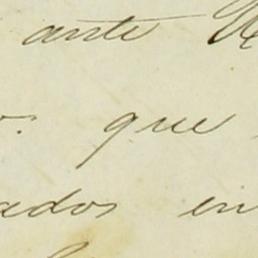 ante
que
ados en